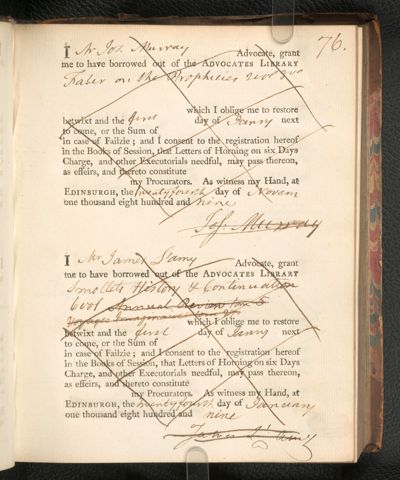 76.
I Mr Jos. Murray Advocate, grant
me to have borrowed out of the ADVOCATES LIBRARY
Faber on the Prophecies 2 vol
betwixt and the first which I oblige me to restore
day of Janry next
to come, or the Sum of
in case of Failzie ; and I consent to the registration hereof
in the Books of Session, that Letters of Horning on six Days
Charge, and other Executorials needful, may pass thereon,
as effeirs, and thereto constitute
my Procurators. As witness my Hand, at
EDINBURGH, the twenty fourth day of Novem
one thousand eight hundred and nine
Jos. Murray
I Mr James Advocate, grant
me to have borrowed out of the ADVOCATES LIBRARY
Smolletts History & Continuation
6 vol Annual Review
Voyages
betwixt and the first which I oblige me to restore
day of Janry next
to come, or the Sum of
in case of Failzie ; and I consent to the registration hereof
in the Books of Session, that Letters of Horning on six Days
Charge, and other Executorials needful, may pass thereon,
as effeirs, and thereto constitute
my Procurators. As witness my Hand, at
EDINBURGH, the twenty fourth day of January
one thousand eight hundred and nine
James